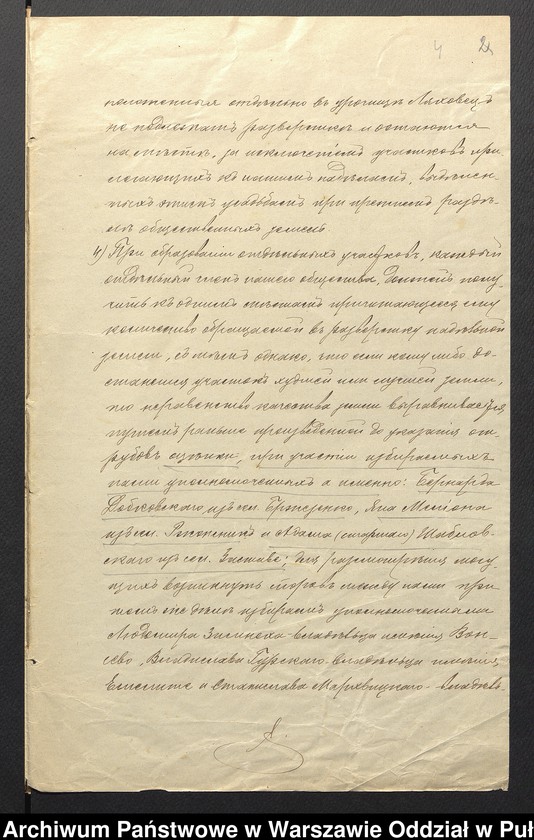 4 2
положенныя отдѣльно въ урочищѣ Ляховецъ
не подлежатъ разверсткѣ и остаются
на мѣстѣ, за исключеніемъ участковъ при
легающихъ къ нашимъ надѣламъ, выдѣлен-
ныхъ этимъ усадьбамъ при прежнемъ раздѣ-
лѣ общественныхъ земель.
4) При образованіи отдѣльныхъ участковъ, каждый
отдѣльный членъ нашего общества, долженъ полу-
чить къ однимъ мѣстамъ причитающееся ему
количество обращаемой въ разверстку надѣльной
земли, съ тѣмъ однако, что если кому либо до-
станется участокъ худшей или лучшей земли,
то неравенство качества земли выравнивается
путемъ раньше произведенной до указанія от-
рубовъ оцѣнки, при участіи избираемыхъ
нами уполномоченныхъ а именно: Бернарда
изъ сел. Яна
изъ сел. и Адама (старшаго)
скаго изъ сел. Заставе; для разсмотрѣнія могу-
щихъ возникнуть споровъ между нами при
томъ же дѣлѣ избираемъ уполномоченными
Людомира владѣльца имѣнія Вон-
сево, Владислава Гурскаго владѣльца имѣнія
и Станислава владѣль-
Archiwum Państwowe w Warszawie Oddział w Puł